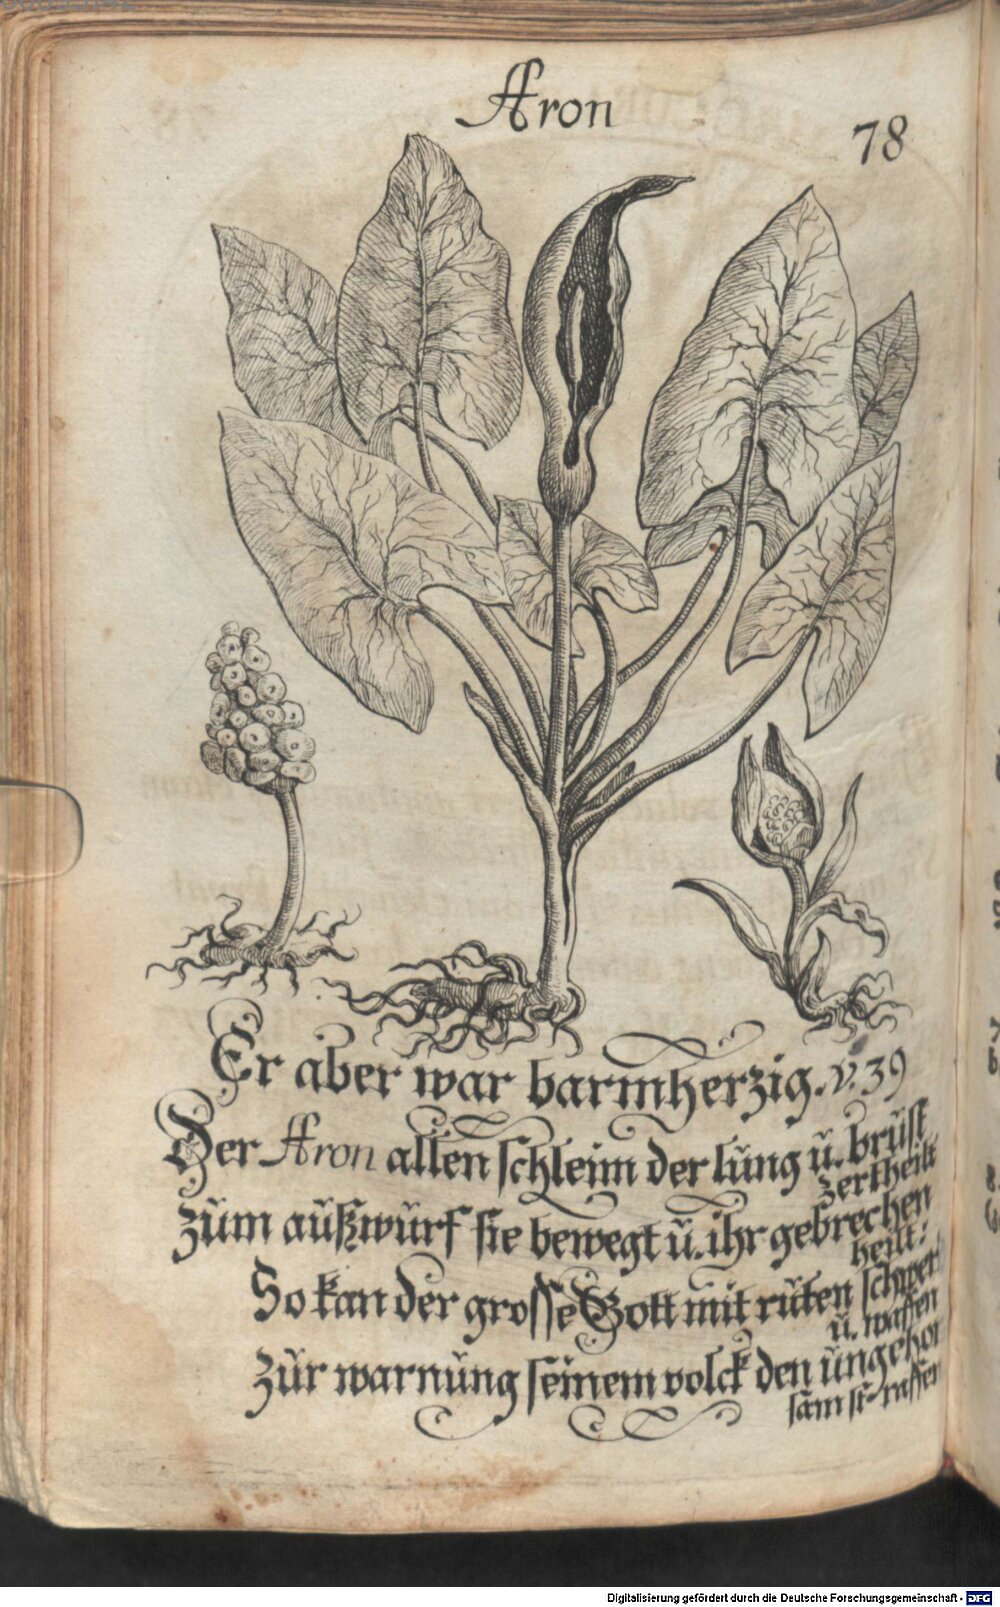 Aron
78
Er aber war barmherzig. v. 39
Der Aron allen schleim der lung ŭ. brŭst zertheilt
zŭm aŭßwŭrf sie bewegt ŭ. ihr gebrechen heilt:
So kan der grosse Gott mit rŭten schwert ŭ. waffen
zŭr warnŭng seinem volck den ŭngehor sam straffen
Digitalisierung gefördert durch die Deutsche Forschungsgemeinschaft - DFG